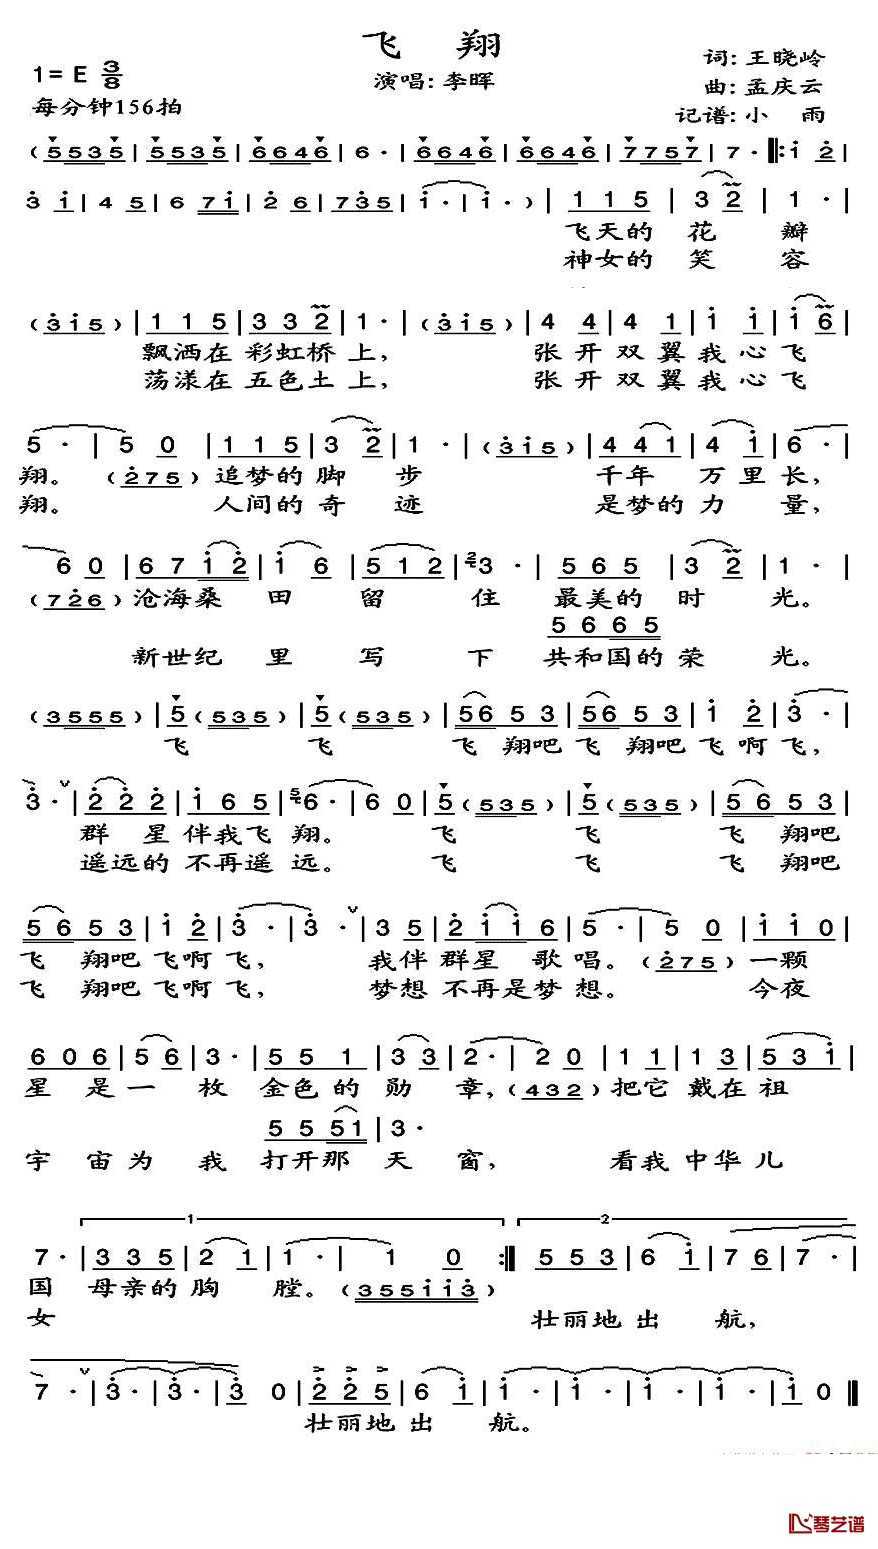 飞 翔
1= E 3/8
演唱: 李晖
词: 王晓岭
曲: 孟庆云
每分钟156拍
记谱: 小 雨
( 5535 | 5535 | 6646 | 6 · | 6646 | 6646 | 7757 | 7 · |: i 2 |
3 i | 4 5 | 6 7i | 2 6 | 735 | i · | i · ) | 1 1 5 | 3 2 | 1 · |
飞天的 花 瓣
神女的 笑 容
( 3i5 ) | 1 1 5 | 3 3 2 | 1 · | ( 3i5 ) | 4 4 | 4 1 | i i | i 6 |
飘洒在 彩虹桥 上, 张 开 双 翼 我 心 飞
荡漾在 五色土 上, 张 开 双 翼 我 心 飞
5 · | 5 0 | 1 1 5 | 3 2 | 1 · | ( 3i5 ) | 4 4 1 | 4 i | 6 · |
翔。 ( 275 ) 追梦的 脚 步 千年 万 里 长,
翔。 人间的 奇 迹 是梦的 力 量,
6 0 | 6 7 i 2 | i 6 | 5 1 2 | 2 3 · | 5 6 5 | 3 2 | 1 · |
( 726 ) 沧海桑 田 留 住 最美的 时 光。
5 6 6 5
新世纪 里 写 下 共和国的 荣 光。
( 3555 ) | 5 ( 535 ) | 5 ( 535 ) | 56 5 3 | 56 5 3 | i 2 | 3 · |
飞 飞 飞 翔吧 飞 翔吧 飞 啊 飞,
3 · | 2 2 2 | i 6 5 | 5 6 · | 6 0 | 5 ( 535 ) | 5 ( 535 ) | 56 5 3 |
群 星 伴我飞 翔。 飞 飞 飞 翔吧
遥远的 不再遥 远。 飞 飞 飞 翔吧
56 5 3 | i 2 | 3 · | 3 · | 3 5 | 2 i i 6 | 5 · | 5 0 | i i 0 |
飞 翔吧 飞啊 飞, 我伴 群星 歌 唱。 ( 275 ) 一颗
飞 翔吧 飞啊 飞, 梦想 不再是梦 想。 今夜
6 0 6 | 5 6 | 3 · | 5 5 1 | 3 3 | 2 · | 2 0 | 1 1 | 1 3 | 5 3 i |
星 是 一 枚 金色 的 勋 章, ( 432 ) 把它 戴在 祖
5 5 51 | 3 ·
宇 宙 为 我 打开那 天 窗, 看我 中华 儿
1 2
7 · | 3 3 5 | 2 1 | 1 · | 1 0 :| 5 5 3 | 6 i | 7 6 | 7 · |
国 母亲的 胸 膛。 ( 355ii3 )
女 壮丽地 出 航,
7 · | 3 · | 3 · | 3 0 | 2 2 5 | 6 i | i · | i · | i · | i · | i 0 ‖
壮丽地 出 航。
琴艺谱